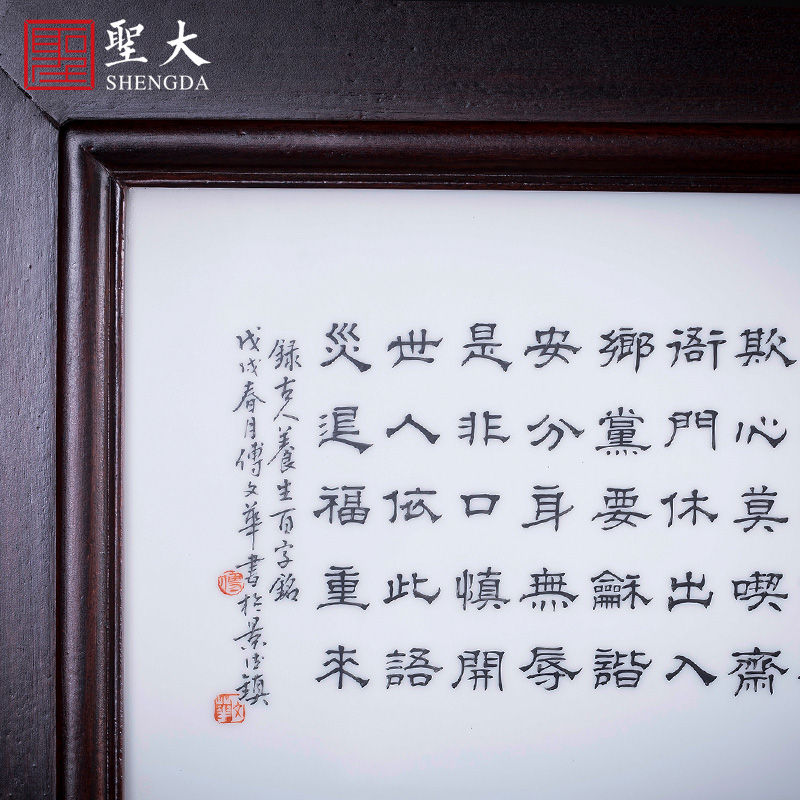 聖大
SHENGDA
欺心莫喫齋
衙門休出入
鄉黨要龢諧
安分身無辱
是非口慎開
世人依此語
災退福重來
錄古人養生百字銘
戊戌春月傅文華書於景德鎮